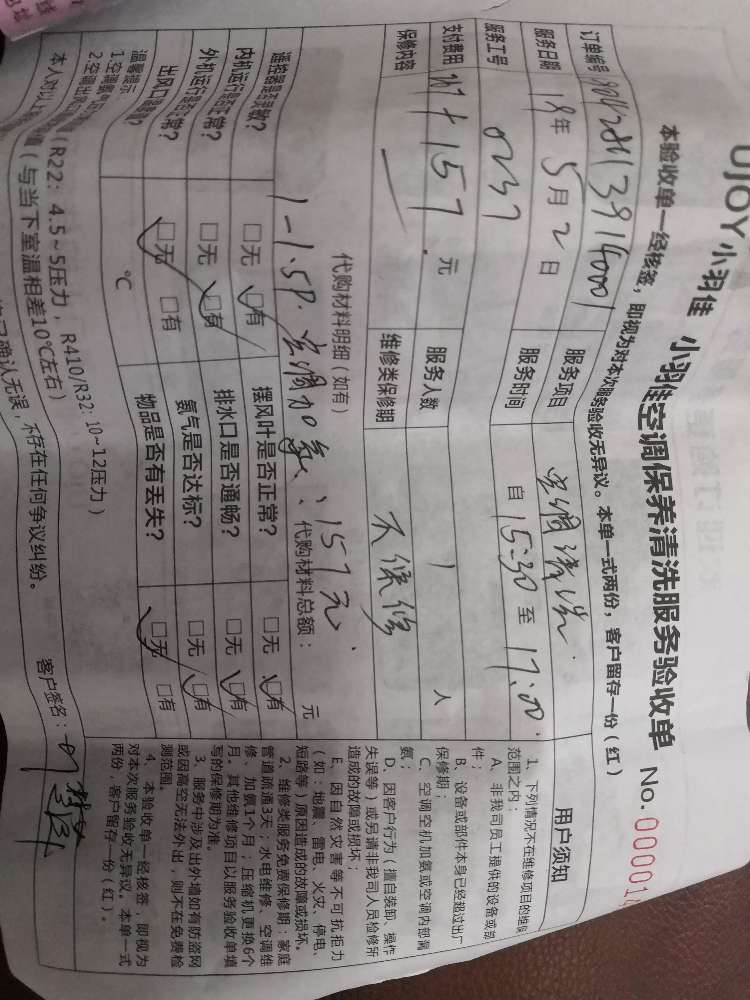 UJOY小羽佳 小羽佳空调保养清洗服务验收单 No. 000014
本验收单一经核签，即视为对本次服务验收无异议。本单一式两份，客户留存一份（红）
订单编号 服务项目 空调清洗
服务日期 19年5月2日 服务时间 自15:30至17:00
服务工号 0237 服务人数 1 人
支付费用 +157 元 维修类保修期 不保修
保修内容
代购材料明细（如有） 代购材料总额： 元
1-1.5P. 空调加氨、157元
遥控器是否灵敏？ □无 □有 摆风叶是否正常？ □无 □有
内机运行是否正常？ □无 □有 排水口是否通畅？ □无 □有
外机运行是否正常？ □无 □有 氨气是否达标？ □无 □有
出风口温度？ ℃ 物品是否有丢失？ □无 □有
温馨提示：
（R22：4.5~5压力，R410/R32：10~12压力）
（与当下室温相差10℃左右）
确认无误，不存在任何争议纠纷。
客户签名：
用户须知
1、下列情况不在维修项目的维保
范围之内：
A、非我司员工提供的设备或部
件；
B、设备或部件本身已经超过出厂
保修期；
C、空调空机加氨或空调内部漏
氨；
D、因客户行为（擅自装卸、操作
失误等）或另请非我司人员检修所
造成的故障或损坏；
E、因自然灾害等不可抗拒力
（如：地震、雷电、火灾、停电、
短路等）原因造成的故障或损坏。
2、维修类服务免费保修期：家庭
管道疏通3天；水电维修、空调维
修、加氨1个月；压缩机更换6个
月。其他维修项目以服务验收单填
写的保修期为准。
3、服务中涉及出外墙如有防盗网
或因高空无法外出，则不在免费检
测范围。
4、本验收单一经核签，即视为
对本次服务验收无异议。本单一式
两份，客户留存一份（红）。